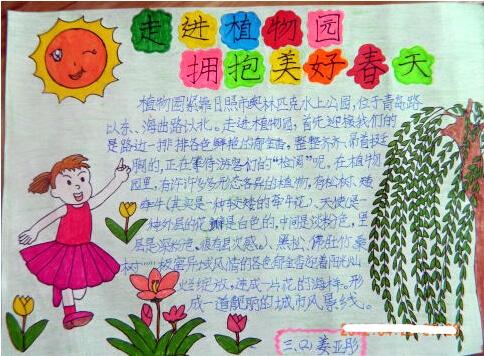 走进植物园
拥抱美好春天
植物园紧靠日照市奥林匹克水上公园,位于青岛路
以东、海曲路以北。走进植物园,首先迎接我们的
是路边一排排各色鲜艳的郁金香,整整齐齐、昂首挺
胸的,正在等待游客们的“检阅”呢。在植物
园里,有许许多多形态各异的植物,有松树、矮
牵牛(其实是一种较矮的牵牛花)、天使(是
一种外层的花瓣是白色的,中间是淡粉色,里
层是深粉色,很有层次感。)、黑松、佛肚竹、桑
树……极富异域风情的各色郁金香迎着阳光灿
烂绽放,连成一片花的海洋。形
成一道靓丽的城市风景线。
三、(2) 姜亚彤